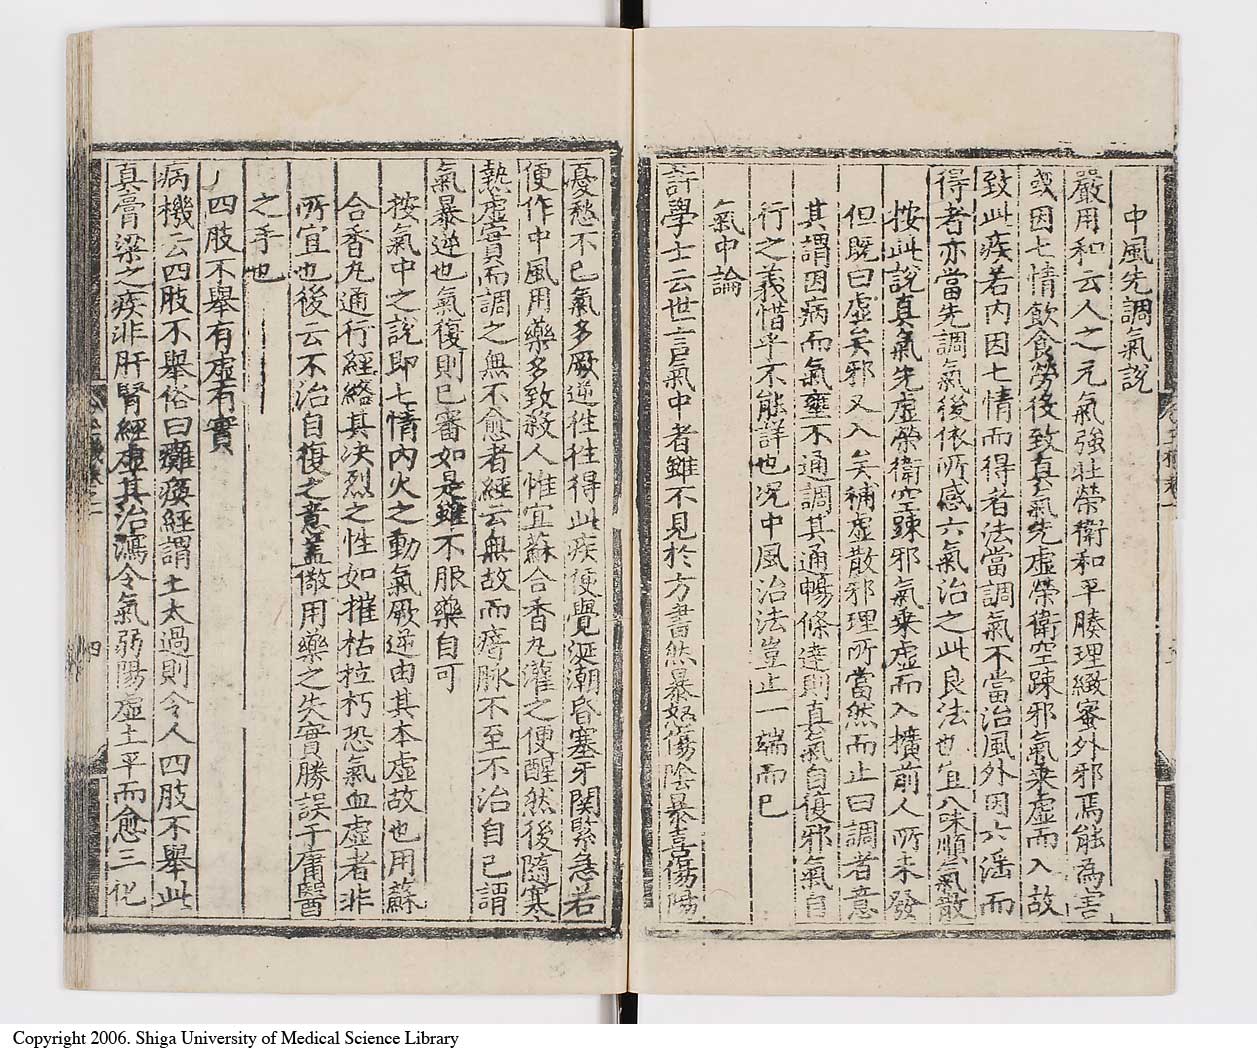 中風先調氣說
嚴用和云人之元氣強壯榮衛和平腠理緻蜜外邪焉能為害
或因七情飲食勞役致真氣先虛榮衛空踈邪氣乘虛而入故
致此疾若內因七情而得者法當調氣不當治風外因六滛而
得者亦當先調氣後依所感六氣治之此良法也宜八味順氣散
按此說真氣先虛榮衛空踈邪氣乘虛而入擴前人所未發
但既曰虛矣邪又入矣補虛散邪理所當然而止曰調者意
其謂因病而氣壅不通調其通暢條達則真氣自復邪氣自
行之義惜乎不能詳也况中風治法豈止一端而已
氣中論
許學士云世言氣中者雖不見於方書然暴怒傷陰暴喜傷陽
憂愁不已氣多厥逆徃徃得此疾便覺涎潮昏塞牙關緊急若
便作中風用藥多致殺人惟宜蘇合香丸灌之便醒然後隨寒
熱虛實而調之無不愈者經云無故而瘖脉不至不治自已謂
氣暴逆也氣復則已審如是雖不服藥自可
按氣中之說即七情內火之動氣厥逆由其本虛故也用蘇
合香丸通行經絡其决烈之性如摧枯拉朽恐氣血虛者非
所宜也後云不治自復之意盖儆用藥之失實勝誤于庸醫
之手也
四肢不舉有虛有實
病機云四肢不舉俗曰癱瘓經謂土太過則令人四肢不舉此
真膏梁之疾非肝腎經虛其治瀉令氣弱陽虛土平而愈三化
四
Copyright 2006. Shiga University of Medical Science Library